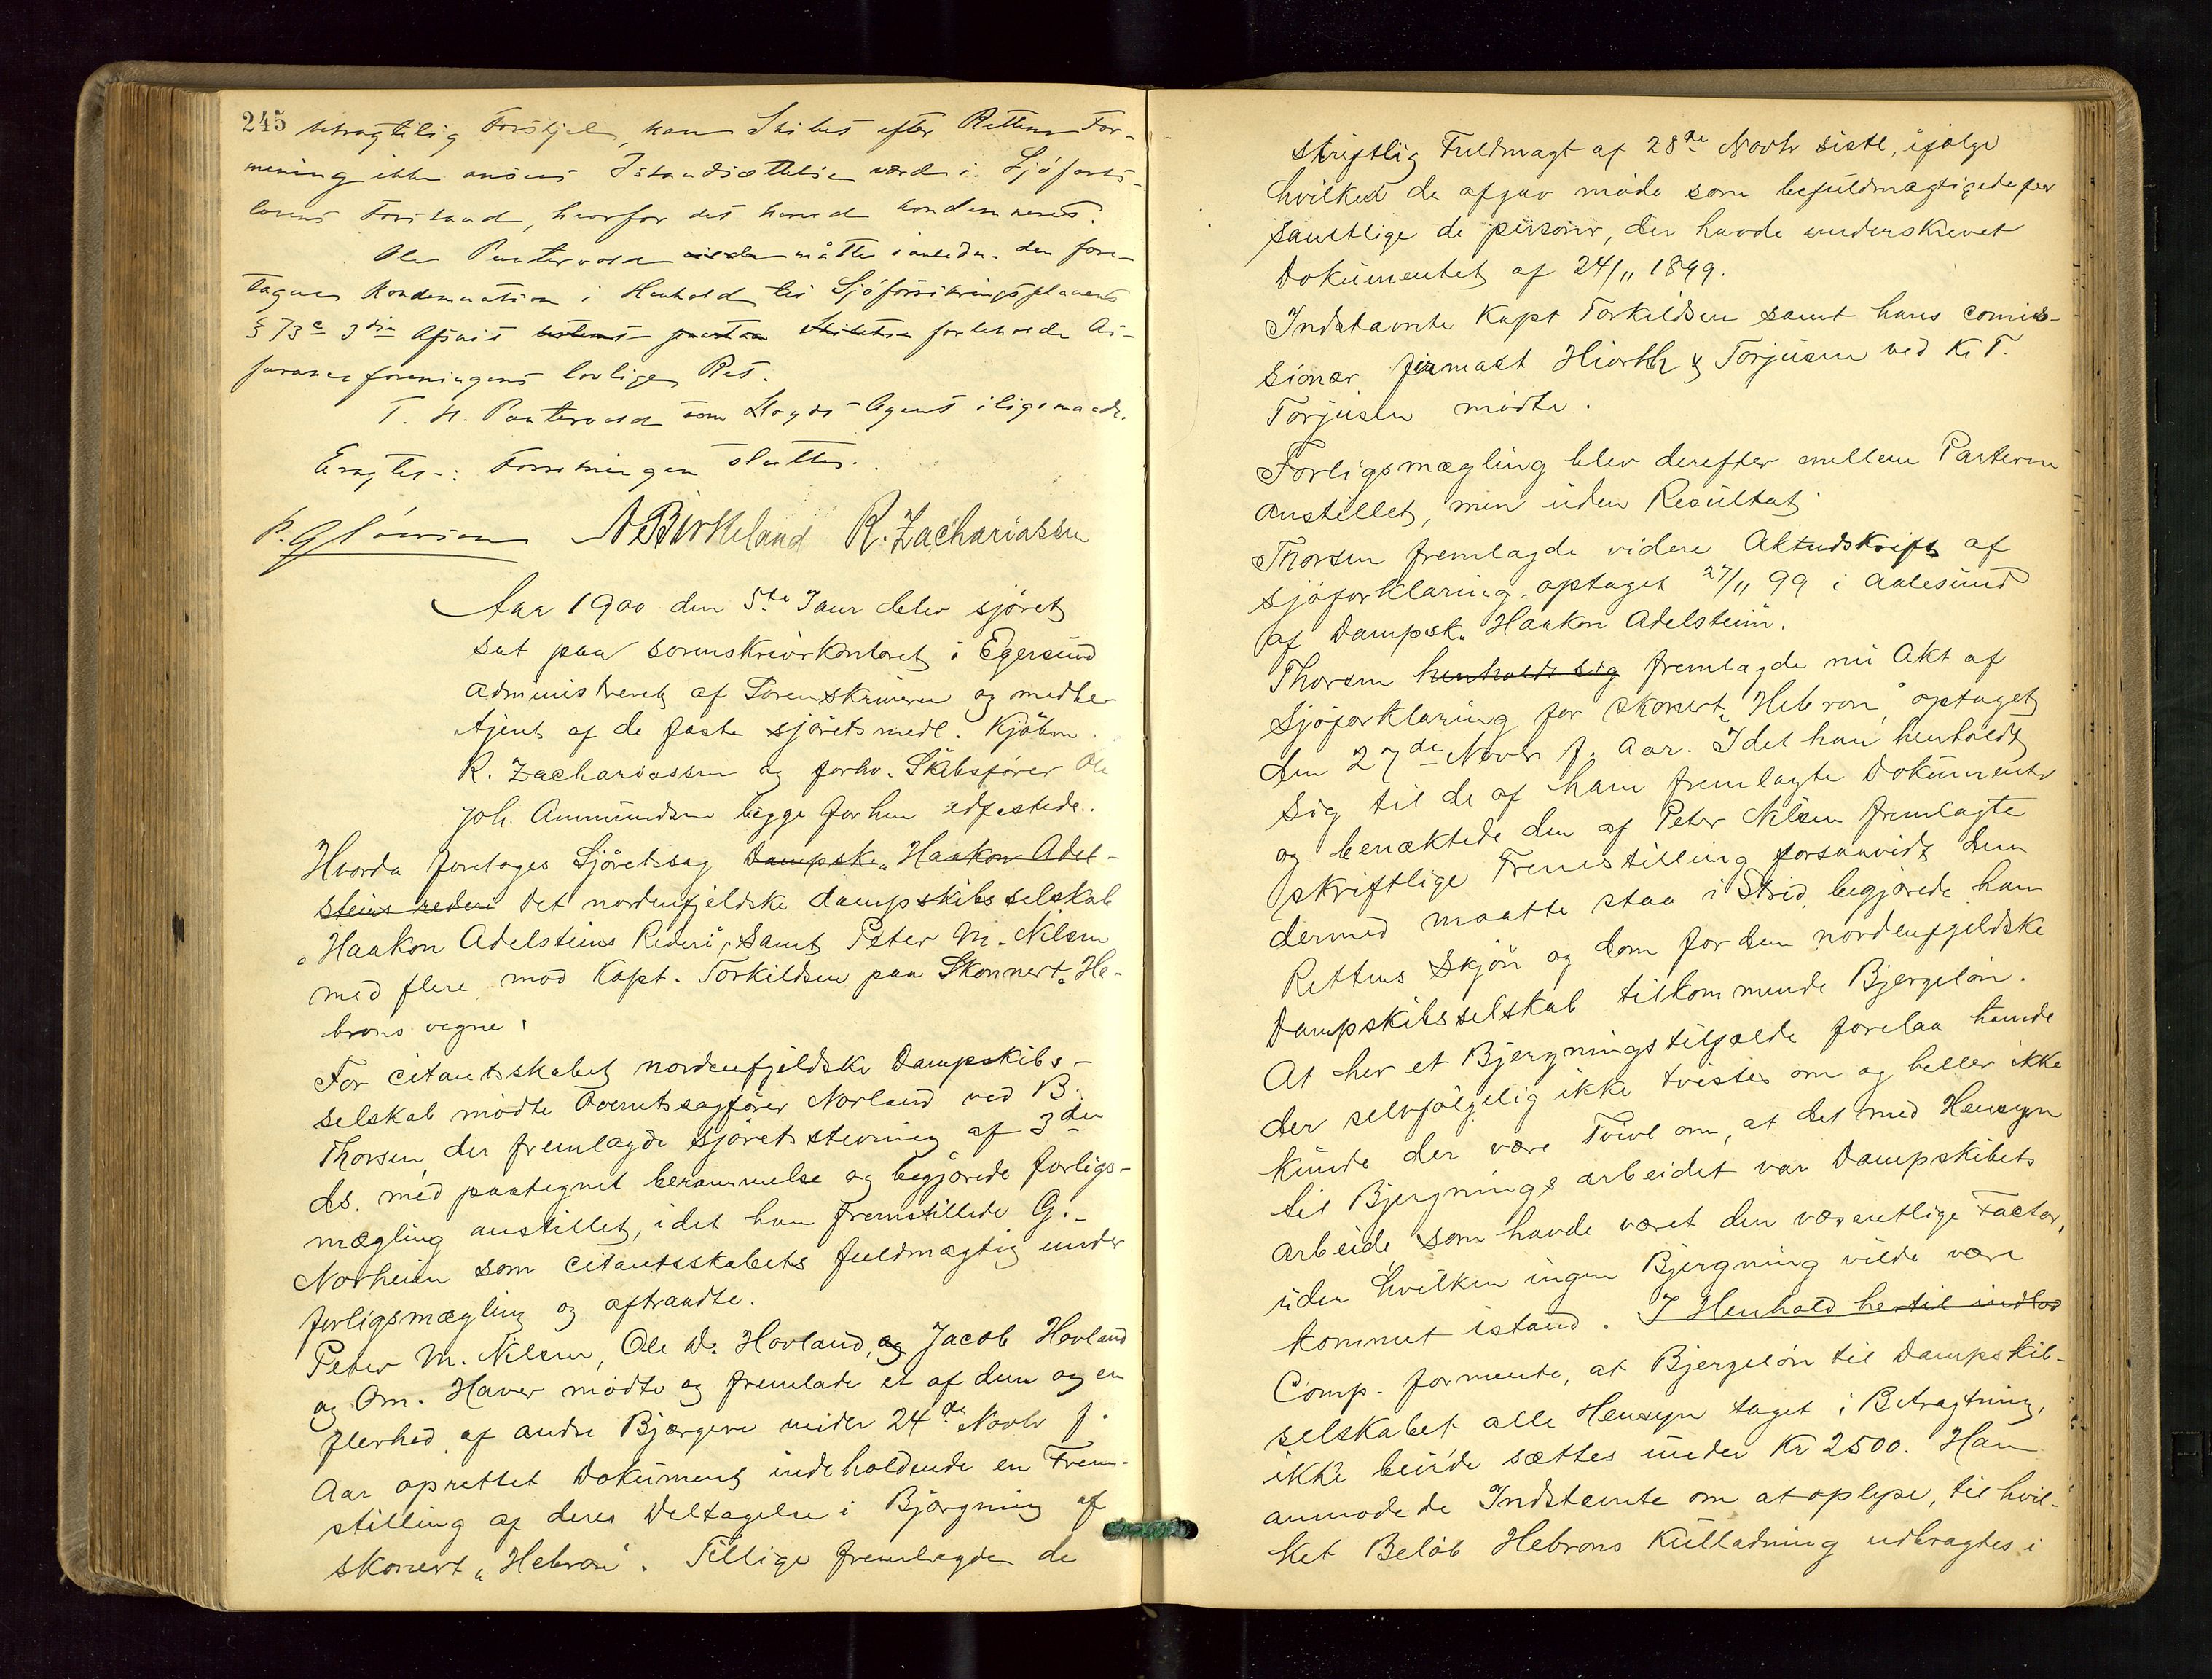 245
betragtelig Forskjel, kan Skibet efter Rettens For-
mening ikke ansees Istandsættelse værd i Sjøfarts-
lovens Forstand, hvorfor det herved kondemneres.
Ole Puntervold måtte i anledn. den fore-
tagne Kondemnation i Henhold til Sjøforsikringsplanens
§ 73 c 3die Afsnit forbeholde As-
suranceforeningens lovlige Ret.
T. H. Puntervold som Lloyds Agent iligemaade.
Eragtes: Forretningen sluttes.
A Birkeland R. Zachariassen
Aar 1900 den 5te Janr blev sjøret
sat paa sorenskriverkontoret i Egersund
administreret af Sorenskriveren og medbe-
tjent af de faste sjøretsmedl. Kjøbm.
R. Zachariassen og forhv. Skibsfører Ole
Joh. Ammundsen begge forhen edfæstede.
Hvorda foretoges Sjøretssag Dampsk. "Haakon Adel-
steins rederi det nordenfjeldske dampskibsselskab
"Haakon Adelsteins Rederi", samt Peter M. Nilsen
med flere mod Kapt. Torkildsen paa Skonnert "He-
brons vegne:
For citantskabet nordenfjeldske Dampskibs-
selskab mødte Overretssagfører Norland ved B.
Thorsen, der fremlagde sjøretsstevning af 3den
ds. med paategnet berammelse og begjærede forligs-
mægling anstillet, idet han fremstillede G.
Norheim som citantskabets fuldmægtig under
forligsmægling og aftraadte.
Peter M. Nilsen, Ole D. Hovland, og Jacob Hovland
og Om. Haver mødte og fremlade et af dem og en
flerhed af andre Bjærgere under 24de Novbr f.
Aar oprettet Dokument indeholdende en Frem-
stilling af deres Deltagelse i Bjærgning af
skonert "Hebron". Tillige fremlagde de
skriftlig Fuldmagt af 28de Novbr sistl, ifølge
hvilken de afgav møde som befuldmægtigede for
samtlige de personer, der havde underskrevet
Dokumentet af 24/11 1899.
Indstævnte Kapt Torkildsen samt hans comis-
sionær firmaet Hiorth & Torjusen ved K. T.
Torjusen mødte.
Forligsmægling blev derefter mellem Parterne
anstillet, men uden Resultat.
Thorsen fremlagde videre Aktudskrift af
sjøforklaring, optaget 27/11 99 i Aalesund
af Dampsk. Haakon Adelstein.
Thorsen henholdt sig fremlagde nu Akt af
Sjøforklaring for skonert "Hebron" optaget
den 27de Novbr f. Aar. Idet han henholdt
sig til de af ham fremlagte Dokumenter
og benæktede den af Peter Nilsen fremlagte
skriftlige Fremstilling forsaavidt den
dermed maatte staa i Strid, begjærede han
Rettens Skjøn og dom for den nordenfjeldske
Dampskibsselskab tilkommende Bjergeløn.
At her et Bjergningstilfælde forelaa kunde
der selvfølgelig ikke tvistes om og heller ikke
kunde der være Tvivl om, at det med Hensyn
til Bjergningsarbeidet var Dampskibets
arbeide, som havde været den væsentlige Factor,
uden hvilken ingen Bjergning vilde være
kommet istand. I Henhold hertil indlod
Comp. formente, at Bjergeløn til Dampskib-
selskabet alle Hensyn taget i Betragtning,
ikke burde sættes under Kr 2500. Han
anmodede Indstevnte om at oplyse, til hvil-
ket Beløb Hebrons Kulladning udbragtes i